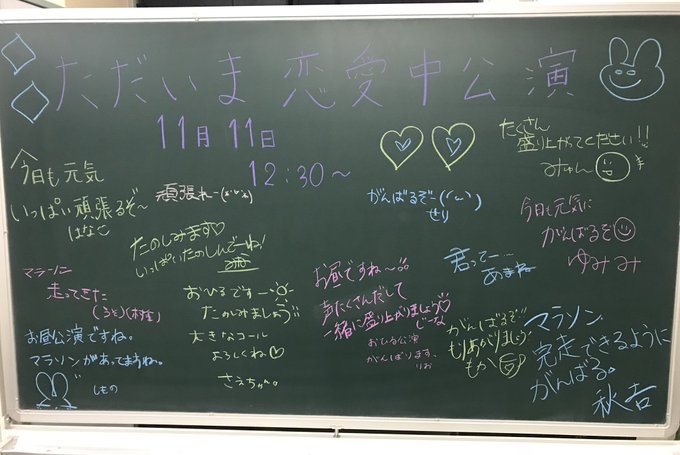 ただいま 恋愛中公演
11月11日
12:30～
今日も元気
いっぱい頑張るぞ～
はなこ
頑張れー
がんばるぞー
せり
たくさん
盛り上がってください!!
みゅん
今日も元気に
がんばるぞ
ゆみみ
たのしみます♡
いっぱいたのしんでーね!
君ってー…
あまね
マラソン
走ってきた
(うそ)
お昼公演ですね。
マラソンがあってますね。
しもの
おひるですー
たのしみましょう
大きなコール
よろしくね♡
さえちゃん。
お昼ですね～
声たくさんだして
一緒に盛り上がりましょう♡
じーな
おひる公演
がんばります、
りお
がんばるぞ!!
もりあがりましょう
もか
マラソン
完走できるように
がんばる。
秋吉